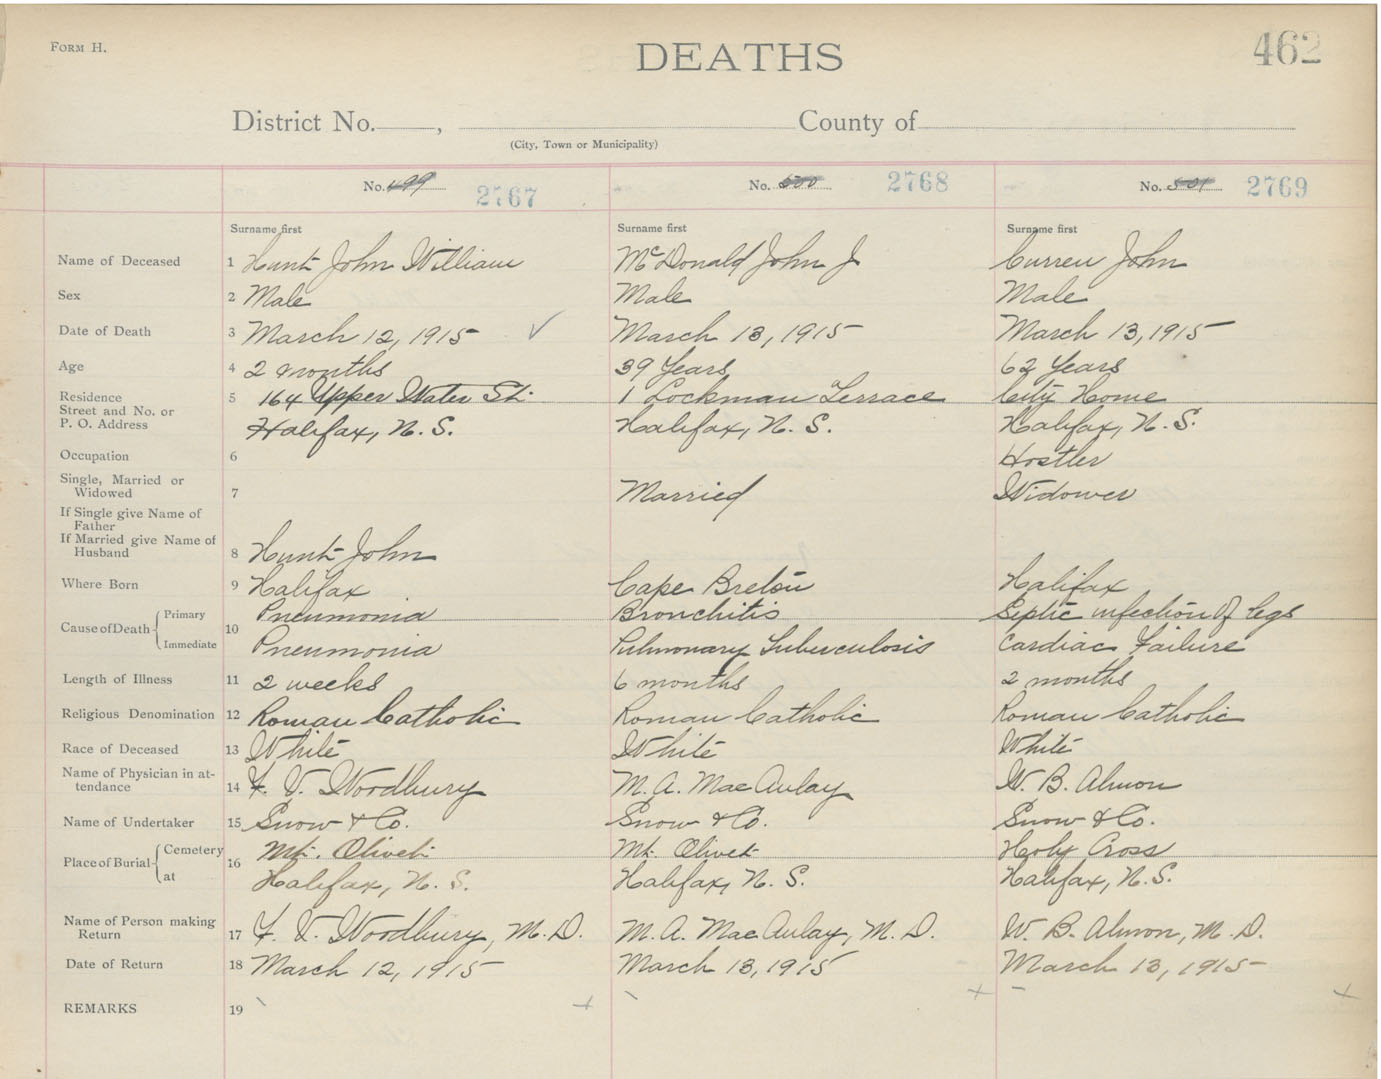 FORM H.
DEATHS
462
District No. , County of
(City, Town or Municipality)
No. 499 2767 No. 500 2768 No. 501 2769
Surname first Surname first Surname first
Name of Deceased 1 Hunt John William McDonald John J Curren John
Sex 2 Male Male Male
Date of Death 3 March 12, 1915 ✓ March 13, 1915 March 13, 1915
Age 4 2 months 39 Years 62 Years
Residence 5 164 Upper Water St. 1 Lockman Terrace City Home
Street and No. or
P. O. Address Halifax, N. S. Halifax, N. S. Halifax, N. S.
Occupation 6 Hostler
Single, Married or
Widowed 7 Married Widower
If Single give Name of
Father
If Married give Name of
Husband 8 Hunt John
Where Born 9 Halifax Cape Breton Halifax
Cause of Death Primary 10 Pneumonia Bronchitis Septic infection of legs
Immediate Pneumonia Pulmonary Tuberculosis Cardiac Failure
Length of Illness 11 2 weeks 6 months 2 months
Religious Denomination 12 Roman Catholic Roman Catholic Roman Catholic
Race of Deceased 13 White White White
Name of Physician in at-
tendance 14 F. V. Woodbury M. A. MacAulay W. B. Almon
Name of Undertaker 15 Snow & Co. Snow & Co. Snow & Co.
Place of Burial Cemetery 16 Mt. Olivet Mt. Olivet Holy Cross
at Halifax, N. S. Halifax, N. S. Halifax, N. S.
Name of Person making
Return 17 F. V. Woodbury, M. D. M. A. MacAulay, M. D. W. B. Almon, M. D.
Date of Return 18 March 12, 1915 March 13, 1915 March 13, 1915
REMARKS 19